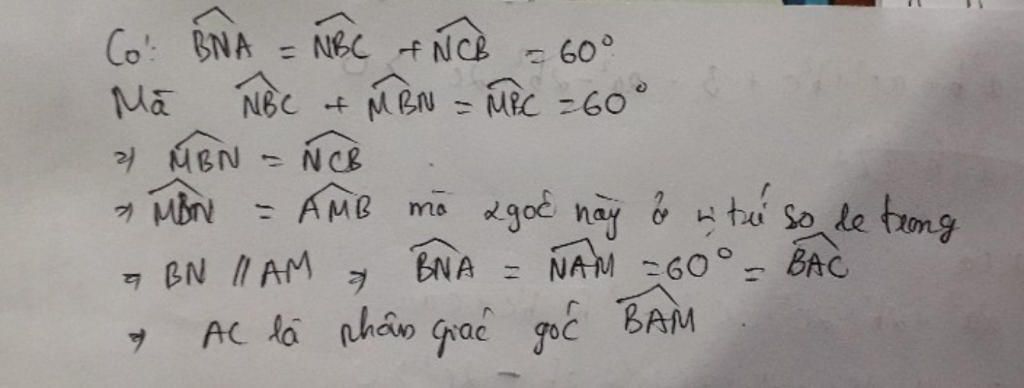 Có: $\widehat{BNA} = \widehat{NBC} + \widehat{NCB} = 60°$
Mà $\widehat{NBC} + \widehat{MBN} = \widehat{MBC} = 60°$
⇒ $\widehat{MBN} = \widehat{NCB}$
⇒ $\widehat{MBN} = \widehat{AMB}$ mà 2 góc này ở vị trí so le trong
⇒ BN // AM ⇒ $\widehat{BNA} = \widehat{NAM} = 60° = \widehat{BAC}$
⇒ AC là phân giác góc $\widehat{BAM}$.